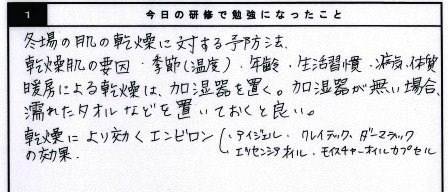 1 今日の研修で勉強になったこと
冬場の肌の乾燥に対する予防法.
乾燥肌の要因・季節(温度)・年齢・生活習慣・病気・体質
暖房による乾燥は、加湿器を置く。加湿器が無い場合、
濡れたタオルなどを置いておくと良い。
乾燥により効くエンビロン ・アイジェル・クレイテック、ダーマラック
の効果. エッセンシャオイル・モイスチャーオイルカプセル